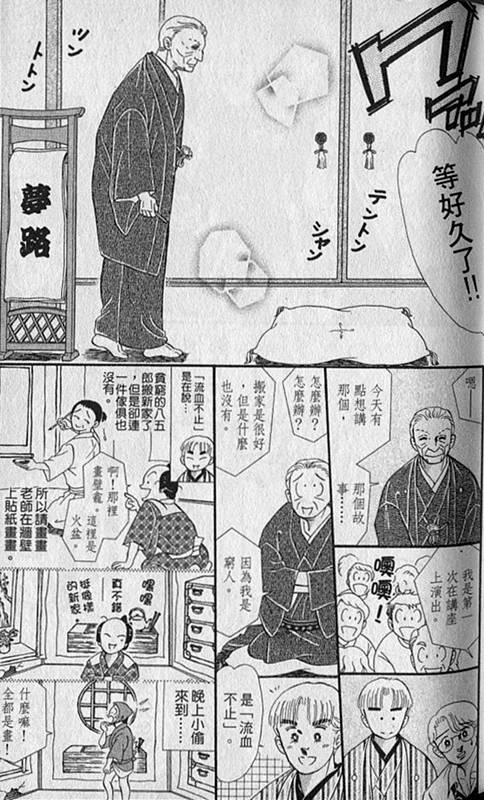 ワ
等好久了!!
テントン
シャン
ツン
トトン
夢路
嗯
今天有
點想講
那個,
那個故
事……
我是第一
次在講座
上演出。
噢噢!
怎麼辦?
怎麼辦?
搬家是很好
,但是什麼
也沒有。
因為我是
窮人。
是「流血
不止」。
「流血不止」
是在說…
貧窮的八五
郎搬新家了
,但是卻連
一件傢俱也
沒有。
啊!那裡
畫壁龕。這裡是
火盆。
所以請畫畫
老師在牆壁
上貼紙畫畫。
嘿嘿
真不錯
挺個樣
的新家
晚上小偷
來到……
什麼嘛!
全都是畫!